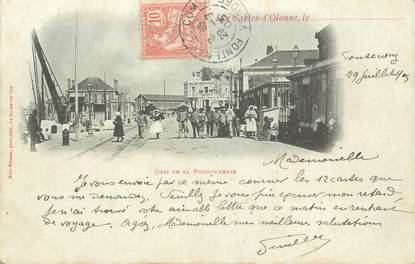 Les Sables-d'Olonne, le
10
Fontenay
29 Juillet 1902
QUAI DE LA POISSONNERIE
Mademoiselle
Je vous envoie par ce même courrier les 12 cartes que
vous me demandez. Veuillez Je vous prie excuser mon retard
Je n'ai trouvé votre aimable lettre que ce matin en rentrant
de voyage. Agréez, Mademoiselle mes meilleures salutations